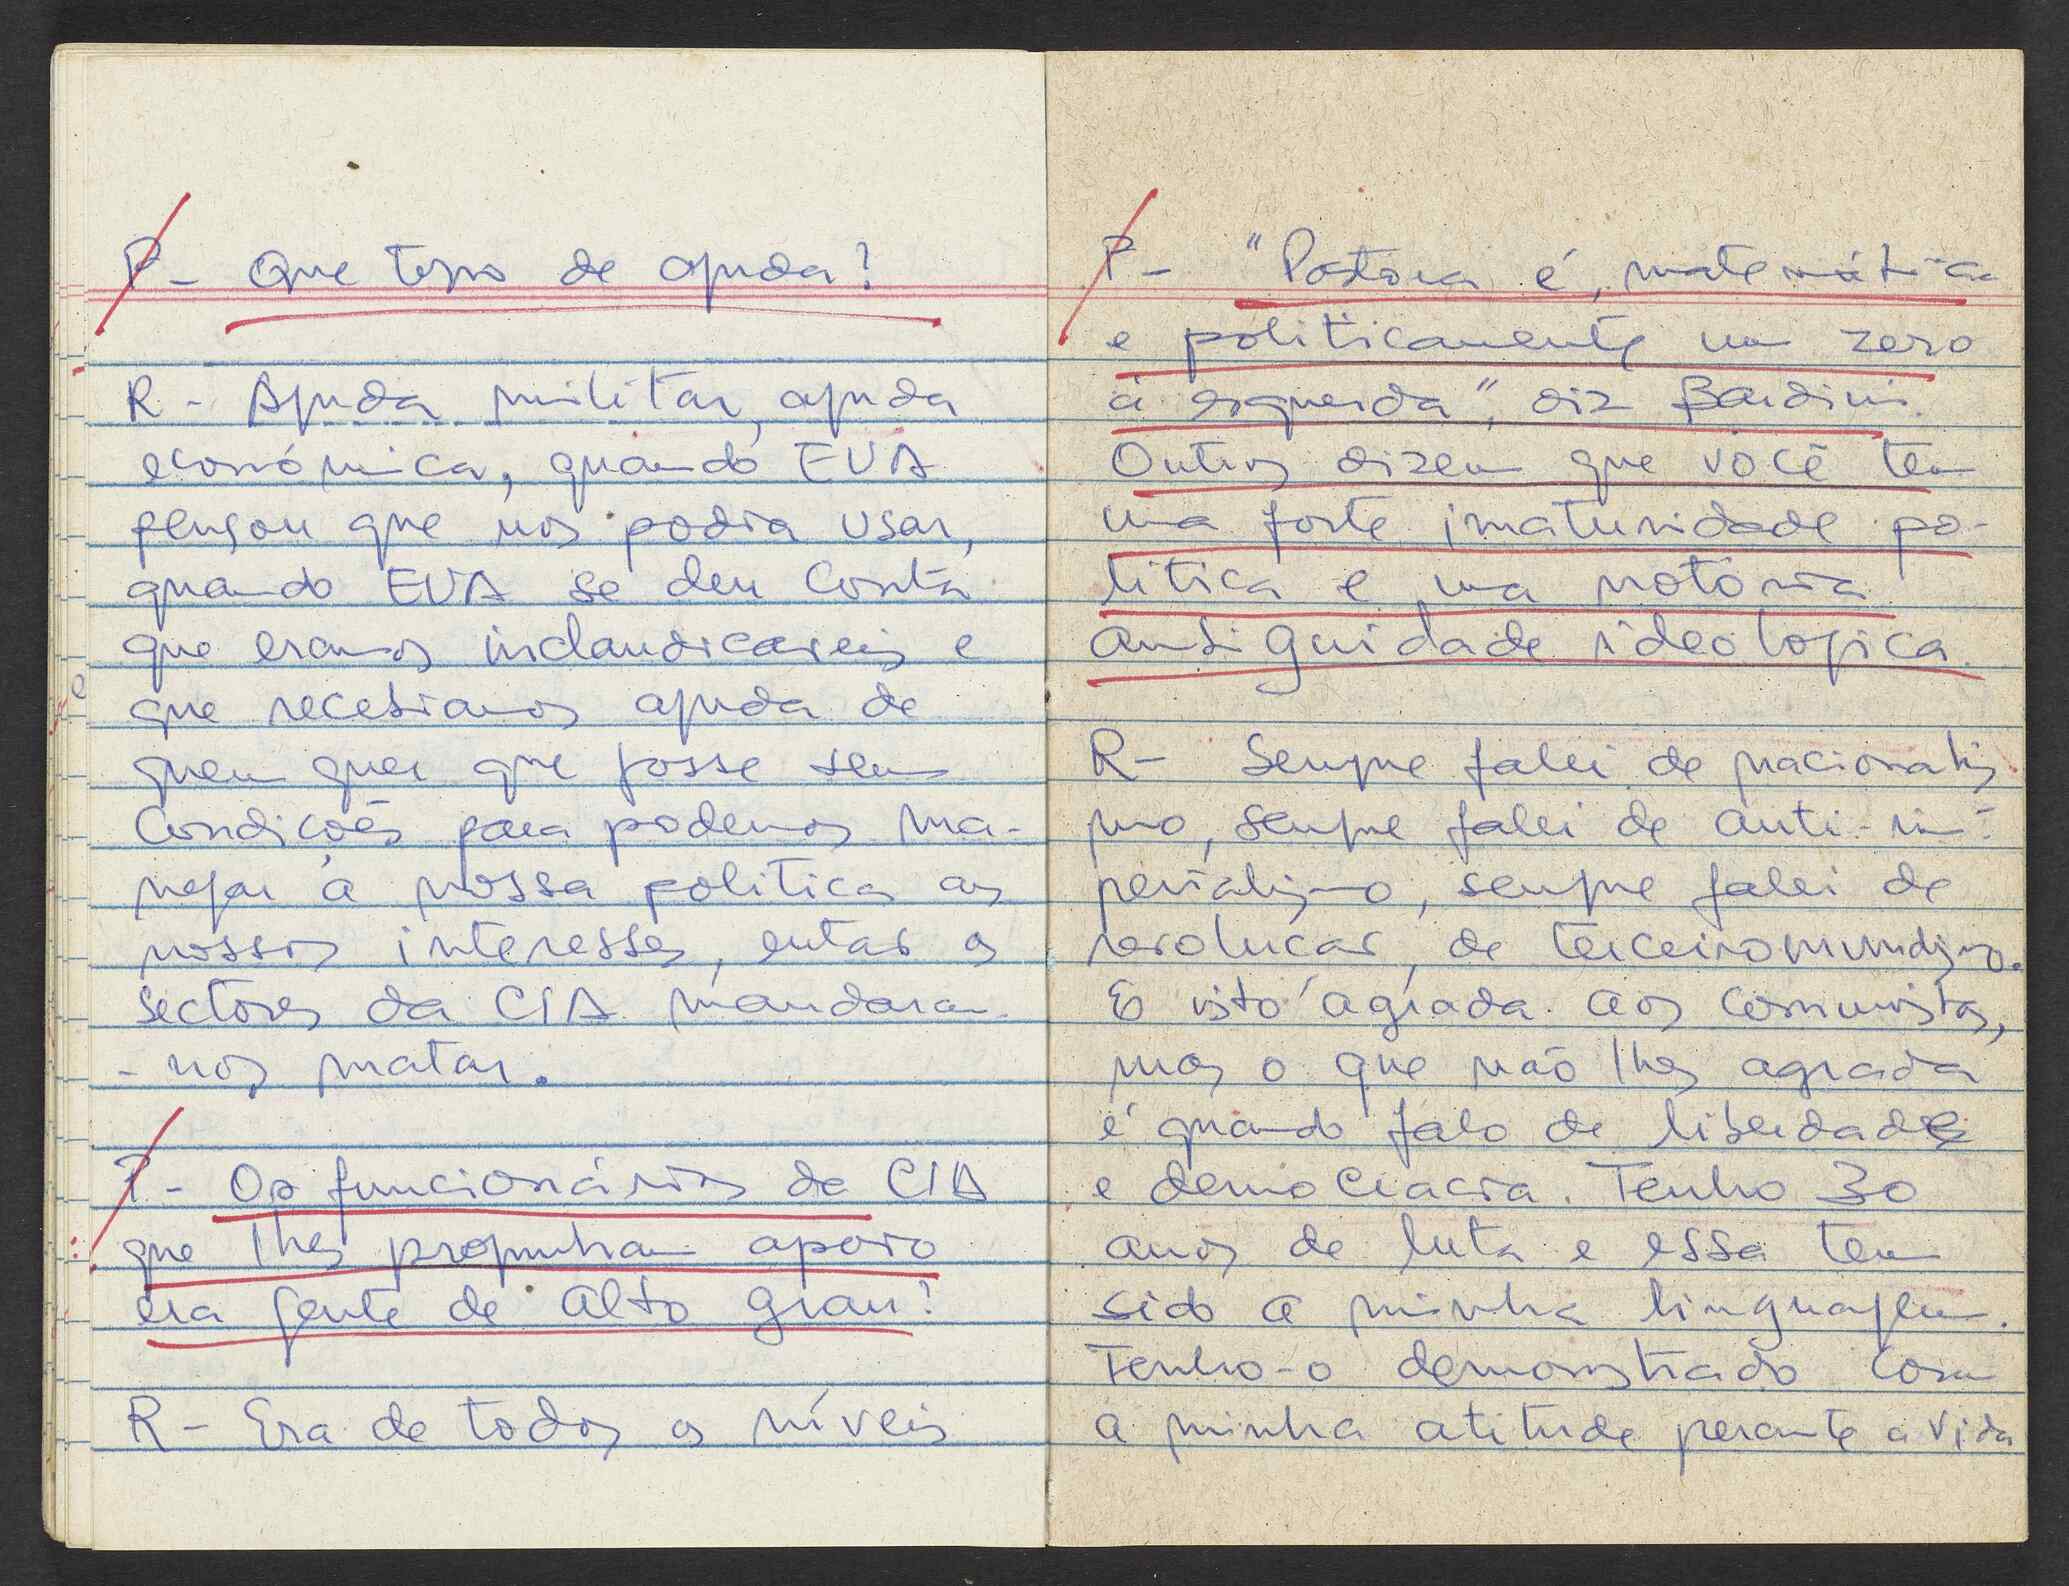 P- Que tipo de ajuda?
R- Ajuda militar, ajuda
económica, quando EUA
pensou que nos podia usar,
quando EUA se deu conta
que eramos inclaudicaveis e
que recebiamos ajuda de
quem quer que fosse sem
condições para podermos ma-
nejar a nossa politica os
nossos interesses, entao os
sectores da CIA mandaram
-nos matar.
P- Os funcionários da CIA
que lhes propunham apoio
era gente de alto grau?
R- Era de todos os níveis
P- "Pastora é, matemática
e politicamente um zero
à esquerda", diz Bardini.
Outros dizem que você tem
uma forte imaturidade po-
litica e uma notória
ambiguidade ideologica.
R- Sempre falei de nacionalis
mo, sempre falei de anti-im-
perialismo, sempre falei de
revolucao, de terceiromundismo.
E isto agrada aos comunistas,
mas o que não lhes agrada
é quando falo de liberdade
e democracia. Tenho 30
anos de luta e essa tem
sido a minha linguagem.
Tenho-o demonstrado com
a minha atitude perante a vida